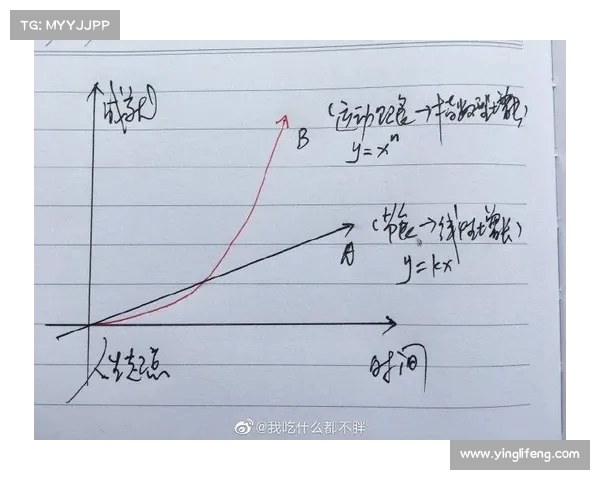 TG: MYYJJPP
B
(运动配备→指数型增长)
y=xⁿ
A
(节食→线性增长)
y=kx
人生起点
时间
@我吃什么都不胖
www.yinglifeng.com